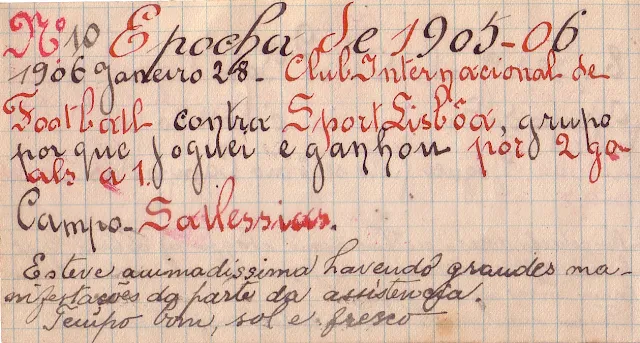 Nº 10 Epocha de 1905-06
1906 Janeiro 28- Club Internacional de
Football contra Sport Lisbôa, grupo
por que joguei e ganhou por 2 go
als a 1.
Campo- Sallessias.
Esteve animadissima havendo grandes ma-
nifestações da parte da assistencia.
Tempo bom, sol e fresco